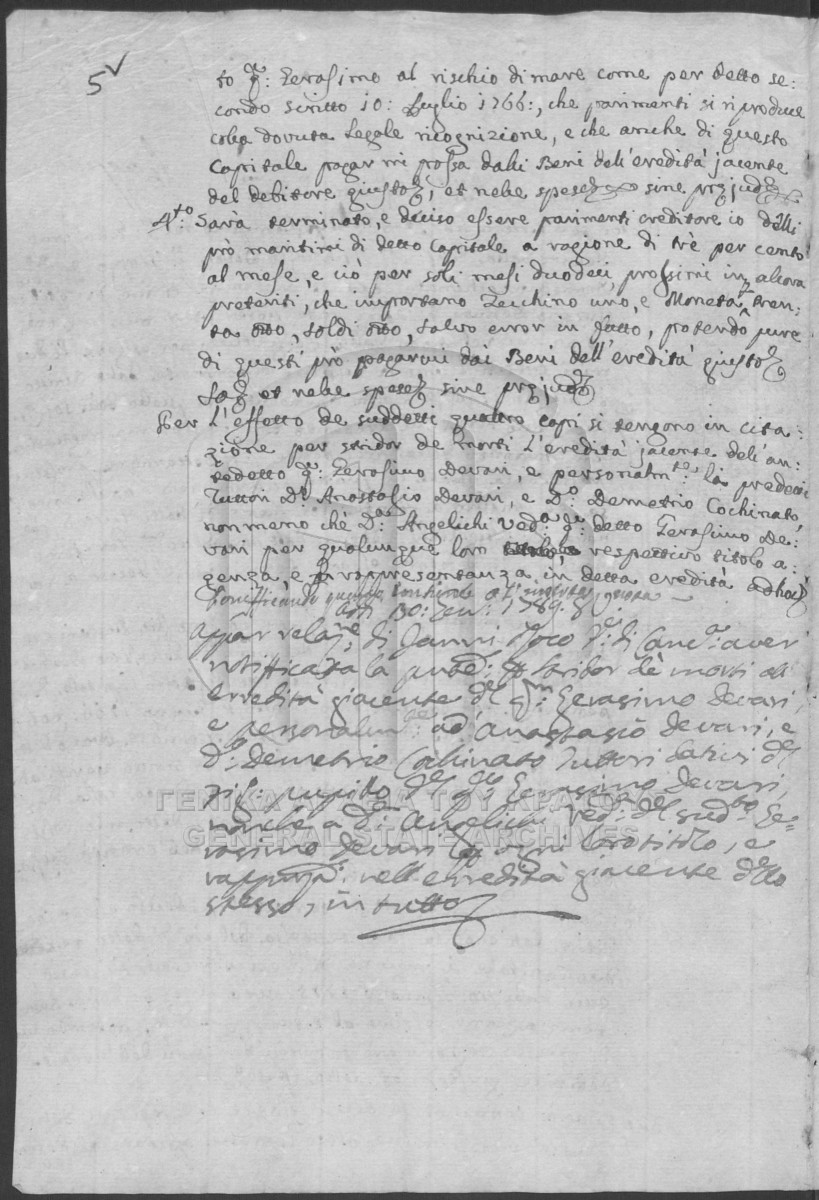 5v
to q: Gerasimo al rischio di mare come per detto se:
condo scritto 10: Luglio 1766:, che parimenti si riproduce
colla dovuta legale ricognizione, e che anche di questo
Capitale pagar mi possa dalli Beni dell'eredità jacente
del debitore giusto, et nelle spese sine prejud
4to: Sarà terminato, e deciso essere parimenti creditore io delli
prò maritimi di detto Capitale a ragione di trè per cento
al mese, e ciò per soli mesi duodeci, prossimi in allora
preteriti, che importano Zecchino uno, e Moneta tren:
ta otto, soldi otto, salvo error in fatto, potendo pure
di questi prò pagarmi dai Beni dell'eredità giusto
et nelle spese sine prejud
Per l'effetto de suddetti quattro capi si tengono in cita:
zione per stridor de morti l'eredità jacente dell'an:
tedetto q: Gerasimo Devari, e personalmte: li predetti
Tuttori Dn: Anastasio Devari, e Do: Demetrio Cochinato,
non meno chè Da: Angelichi veda: q: detto Gerasimo De:
vari per qualunque loro respettivo titolo a:
genza, e rappresentanza, in detta eredità ad hoc
Adi 30: Gen: 1789. S.V.
Appar relane, di Janni di Cancra: aver
notifficata la pnte: stridor dè morti all
erredità giacente del qm: Gerasimo Devari,
e personalmte: ad Anastasio Devari, e
Do: Demetrio Cochinato Tuttori dativi del
pupillo del qm Gerasimo Devari,
nonche a Da: Angelichi Veda: del sudto Ge=
rasimo Devari per ogni loro titolo, e
rappnza: nell'erredità giacente dello
stesso, in tutto
ΓΕΝΙΚΑ ΑΡΧΕΙΑ ΤΟΥ ΚΡΑΤΟΥΣ
GENERAL STATE ARCHIVES